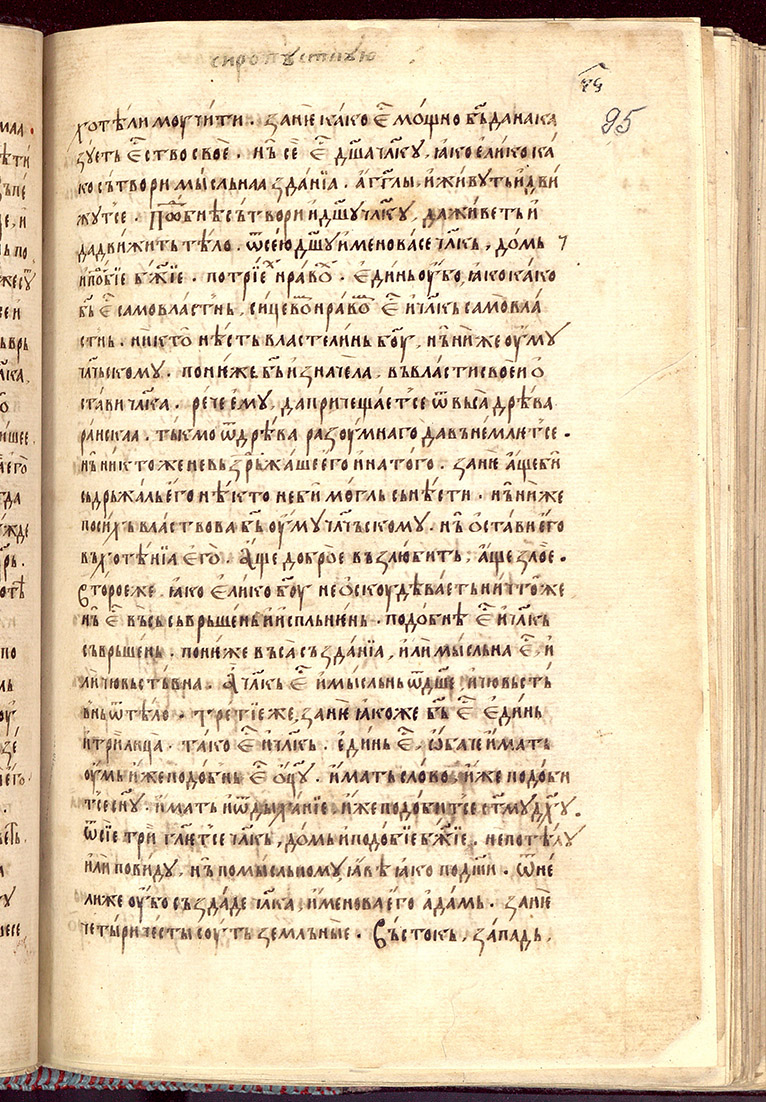 сиропꙋстнꙋю
95
хотѣли моучити. занѥ како е҃ мощно бъ да нака
зꙋеть е҃ство своѥ. нъ се е҃ дш҃а чл҃кꙋ, ꙗко елико ка
ко сътвори мысльнаа зданїа. аг҃глы. и живꙋть и дви
жꙋтсе. подобнѣ сътвори и дш҃ꙋ чл҃кꙋ, да живеть и
да движить тѣло. ѿ сею дш҃ꙋ именова се чл҃кь, домь
и подобїе б҃жїе. по трїех нравох. единь оубо, ꙗко како
бь е҃ самовластнь, сицевом нравом е҃ и чл҃кь самовла
стнь. никто нѣсть властелинь б҃оу, нъ ниже оумꙋ
чл҃чьскомꙋ. понꙗже бь изначела въ власти своеи о
стави чл҃ка. рече емꙋ, да причещает се ѿ выса дрѣва
раискаа. тькмо ѿ дрѣва разоумнаго да вънемлет се.
нъ никтоже невьздрьжаше его и на того. занѥ аще би
сьдрьжаль его нѣкто не би могль сьнѣсти. нъ ниже
по сихь властвова бь оумꙋ чл҃чьскомꙋ. нъ остави его
въ хотѣнїа его. аще доброе възлюбить, аще злое.
Второеже ꙗко елико б҃оу не оскоудѣваеть ничтоже
нъ е҃ въсь сьврьшень и испльнѥнь. подобнѣ е҃ и чл҃кь
съврьшень. понꙗже въса създанїа, или мысльна е҃, и
ли чювьствна. А чл҃кь е҃ и мысльнь ѿ дш҃е, и чювьств
ьнь ѿ тѣло. третїе же, занѥ ꙗкоже бь е҃ единь
и три лица. тако е҃ и чл҃кь. единь е҃, обаче имать
оумь иже подобнь е҃ оц҃ꙋ. имать слово, иже подобн
тсе сн҃ꙋ. имать и ѿдыханїе, иже подобит се ст҃мꙋ дх҃ꙋ.
ѿ сїе три гл҃ет се чл҃кь, домь и подобїе б҃жїе. не по тѣлꙋ
или по видꙋ, нъ по мысльномꙋ, ꙗвѣ ꙗко по дш҃и. ѿне
лиже оубо създаде чл҃ка, именова его адамь. занѥ
четыри чести соуть земльныѥ. Въстокь, западь,